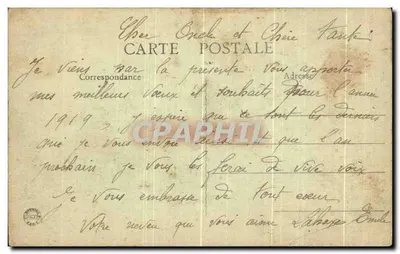 Cher Oncle et Chère Tante
CARTE POSTALE
Je viens par la présente vous apporter
Correspondance Adresse
mes meilleurs vœux et souhaits pour l'année
1919, j'espère que ce sont les derniers
que je vous envoie ainsi et que l'an
prochain je vous les ferai de vive voix
Je vous embrasse de tout cœur
Votre neveu qui vous aime Emile
CPAPHIL